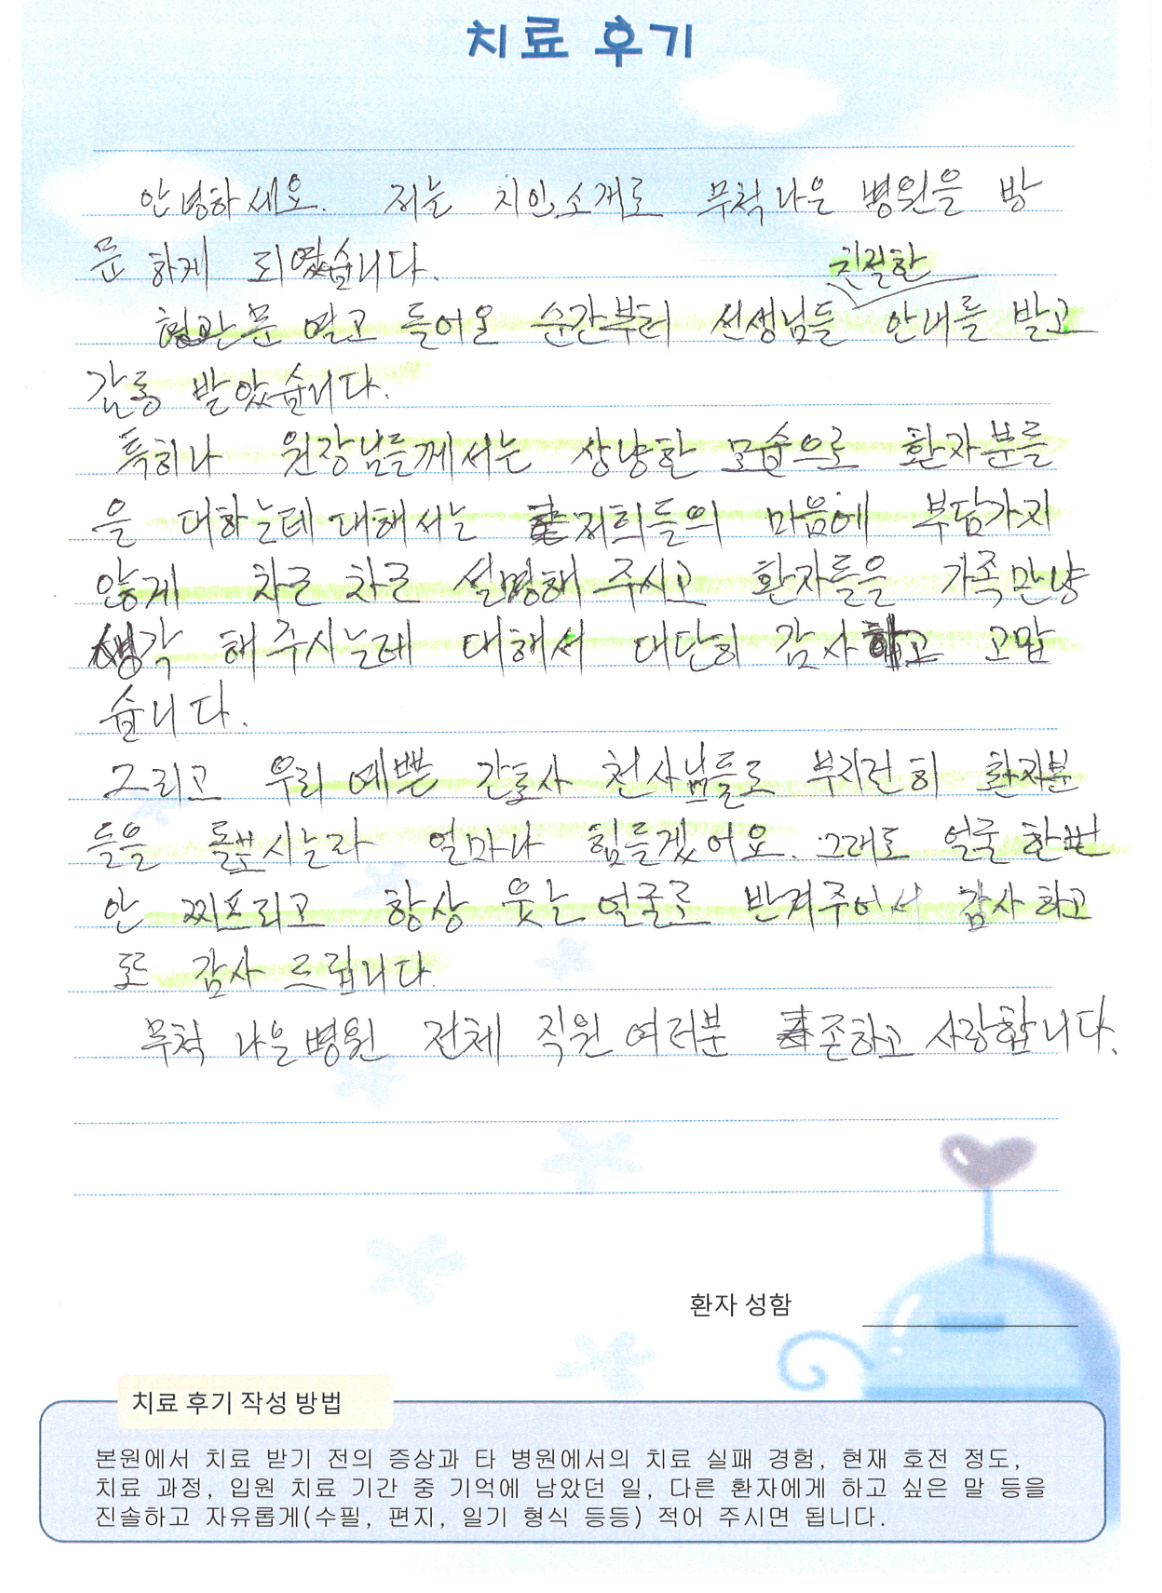 치료 후기
안녕하세요. 저는 지인소개로 무척나은 병원을 방
문하게 되었습니다.
친절한
현관문 열고 들어온 순간부터 선생님들 안내를 받고
감동 받았습니다.
특히나 원장님들께서는 상냥한 모습으로 환자분들
을 대하는데 대해서는 저희들의 마음에 부담가지
않게 차근 차근 설명해 주시고 환자들을 가족만양
생각 해주시는데 대해서 대단히 감사하고 고맙
습니다.
그리고 우리 예쁜 간호사 천사님들도 부지런히 환자분
들을 돌보시느라 얼마나 힘들겠어요. 그래도 얼굴 한번
안 찌프리고 항상 웃는 얼굴로 반겨주어서 감사하고
또 감사 드립니다.
무척 나은병원 전체 직원 여러분 존하고 사랑합니다.
환자 성함
치료 후기 작성 방법
본원에서 치료 받기 전의 증상과 타 병원에서의 치료 실패 경험, 현재 호전 정도,
치료 과정, 입원 치료 기간 중 기억에 남았던 일, 다른 환자에게 하고 싶은 말 등을
진솔하고 자유롭게(수필, 편지, 일기 형식 등등) 적어 주시면 됩니다.